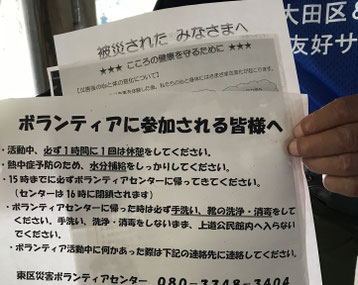 大田区&
友好サ
被災された みなさまへ
★★★ こころの健康を守るために ★★★
ボランティアに参加される皆様へ
・活動中、必ず1時間に1回は休憩をしてください。
・熱中症予防のため、水分補給をしっかりしてください。
・15時までに必ずボランティアセンターに帰ってきてください。
(センターは16時に閉鎖されます)
・ボランティアセンターに帰った時は必ず手洗い、靴の洗浄・消毒をして
ください。手洗い、洗浄・消毒をしないまま、上道公民館内へ入らない
でください。
・ボランティア活動中に何かあった際は下記の連絡先に連絡してください。
東区災害ボランティアセンター 080-3348-3404